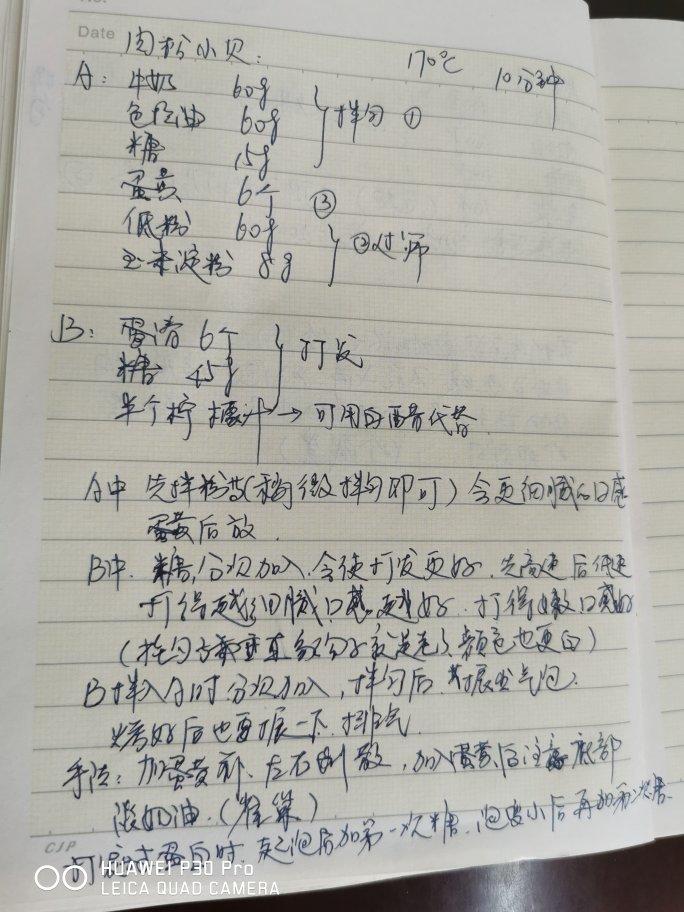 Date 肉松小贝: 170℃ 10分钟
A: 牛奶 60g
色拉油 60g 拌匀 ①
糖 15g
蛋黄 6个 ③
低粉 60g ②过筛
玉米淀粉 8g
B: 蛋清 6个
糖 45g 打发
半个柠檬汁 → 可用白醋代替
A中 先拌粉类(稍微拌匀即可)会更细腻的口感
蛋黄后放.
B中. 糖,分次加入.会使打发更好.先高速后低速
打得越细腻口感越好.打得嫩口感好
就是老了颜色也更白)
B拌入A时分次加入,拌匀后,震出气泡.
烤好后也要震一下.排气
手法: 加蛋黄前.左右 散,加入蛋黄后注意底部
淡奶油.
打 蛋白时.起泡后加第一次糖.泡变小后再加第二次糖.
CJP
HUAWEI P30 Pro
LEICA QUAD CAMERA